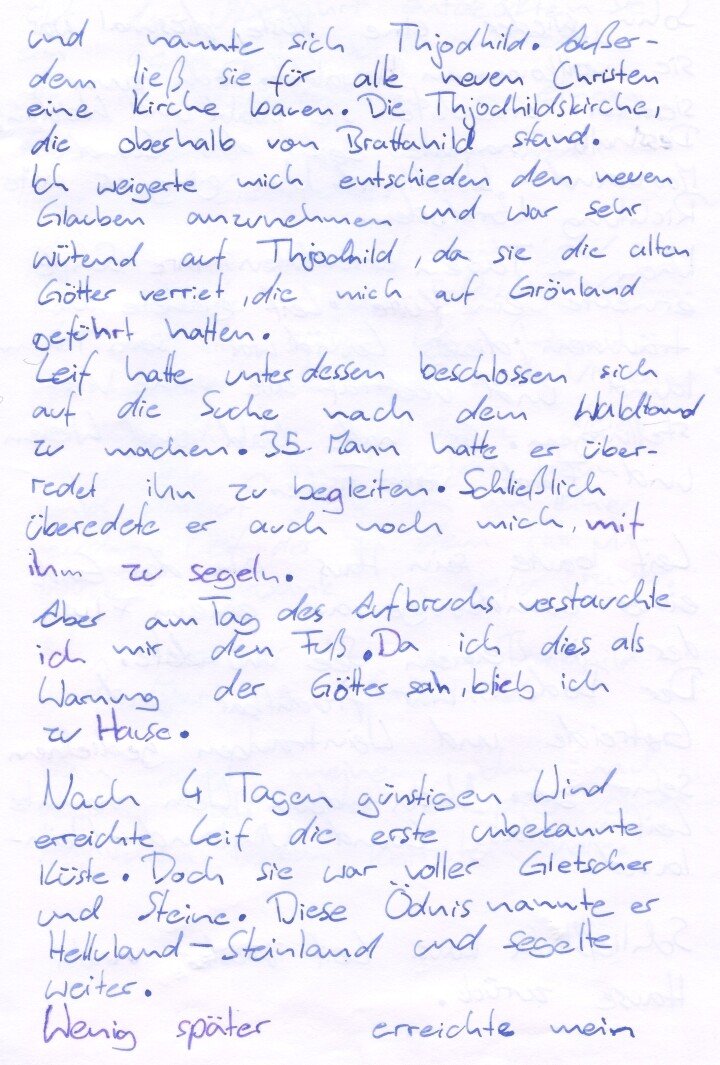 und nannte sich Thjodhild. Außer-
dem ließ sie für alle neuen Christen
eine Kirche bauen. Die Thjodhildskirche,
die oberhalb von Brattahild stand.
Ich weigerte mich entschieden den neuen
Glauben anzunehmen und war sehr
wütend auf Thjodhild, da sie die alten
Götter verriet, die mich auf Grönland
geführt hatten.
Leif hatte unterdessen beschlossen sich
auf die Suche nach dem Waldland
zu machen. 35 Mann hatte er über-
redet ihn zu begleiten. Schließlich
überedete er auch noch mich, mit
ihm zu segeln.
Aber am Tag des Aufbruchs verstauchte
ich mir den Fuß. Da ich dies als
Warnung der Götter sah, blieb ich
zu Hause.
Nach 4 Tagen günstigen Wind
erreichte Leif die erste unbekannte
Küste. Doch sie war voller Gletscher
und Steine. Diese Ödnis nannte er
Helluland - Steinland und segelte
weiter.
Wenig später erreichte mein